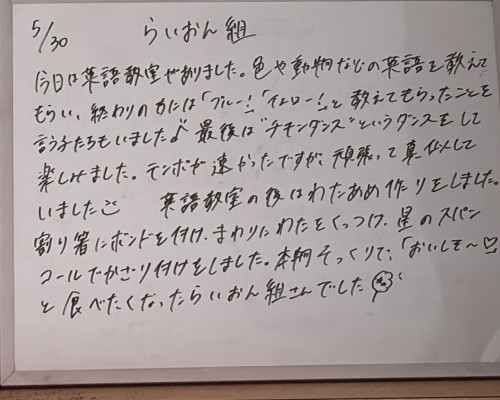 5/30 らいおん組
今日は英語教室がありました。色や動物などの英語を教えて
もらい、終わりの方には「ブルー!」「イエロー!」と教えてもらったことを
言う子たちもいました♪ 最後は"チキンダンス"というダンスをして
楽しみました。テンポが速かったですが、頑張って真似して
いました 英語教室の後はわたあめ作りをしました。
割り箸にボンドを付け、まわりにわたをくっつけ、星のスパン
コールでかざり付けをしました。本物そっくりで、「おいしそ〜♡」
と食べたくなったらいおん組さんでした